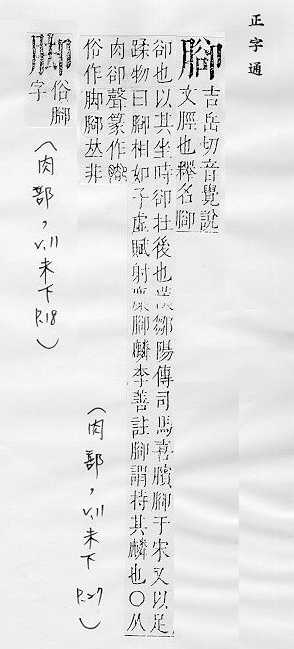 正字通
腳
吉岳切音覺說
文脛也釋名腳
卻也以其坐時卻在後也漢鄒陽傳司馬喜臏腳于宋又以足
蹂物曰腳相如子虛賦射麋腳麟李善註腳謂持其麟也○从
肉卻聲篆作
俗作脚腳𠀤非
(肉部,v.11未下 P.27)
脚
俗腳
字
(肉部,v.11未下 P.18)